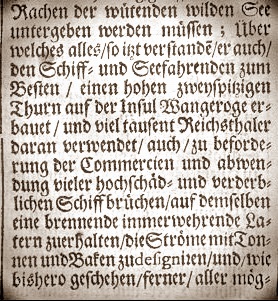 Rachen der wütenden wilden See
untergeben werden müssen; Über
welches alles/ so itzt verstandē/ er auch/
den Schiff- und Seefahrenden zum
Besten / einen hohen zweyspitzigen
Thurn auf der Insul Wangeroge er-
bauet/ und viel tausent Reichsthaler
daran verwendet/ auch/ zu beforde-
rung der Commercien und abwen-
dung vieler hochschäd- und verderb-
lichen Schiffbrüchen/ auf demselben
eine brennende immerwehrende La-
tern zuerhalten/ die Ströme mit Ton-
nen und Baken zudesigniren/ und/ wie
bishero geschehen/ ferner/ aller mög-